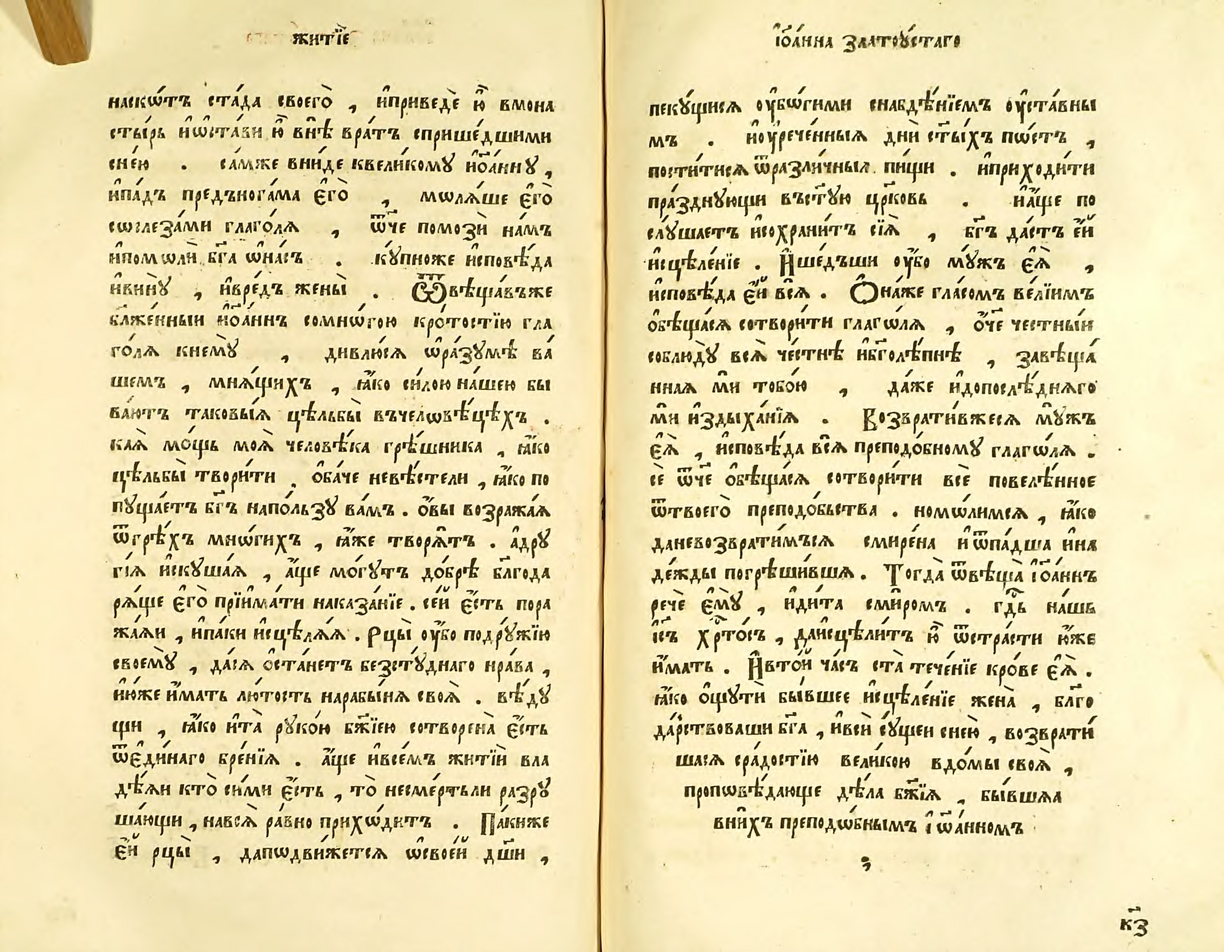 житїе
наскѡ́тъ ста́да своего̀ , и҆приведѐ ю҆̀ вмона
сты́рь и҆ѡ҆ста́ви ю҆̀ внѣ̀ вра́тъ сприше́дшими
сне́ю . са́мже вни́де квели́кому и҆ѡ҆а́нну ,
и҆па́дъ предъногама є҆го̀ , молѧ́ше є҆го̀
сослеза́ми глаго́лѧ , ѿ́че помози́ на́мъ
и҆помоли́ бг҃а ѡ҆на́съ . ку́пноже и҆сповѣ́да
и҆вину̀ , и҆вре́дъ жены̀ . Ѿвѣща́въже
блаже́нныи и҆ѡ҆а́ннъ сомно́гою кро́тостїю гла
го́лѧ кнему̀ , дивлю́сѧ ѡ҆ра́зумѣ ва́
шемъ , мнѧ́щихъ , ꙗ҆́ко си́лою на́шею бы
ва́ютъ таковы́ѧ цѣльбы̀ въчеловѣ́цѣхъ .
ка́ѧ мо́щь моѧ̀ человѣ́ка грѣ́шника , ꙗ҆́ко
цѣльбы̀ твори́ти . ѻ҆ба́че невѣ́стели , ꙗ҆́ко по
пуща́етъ бг҃ъ напо́льзу ва́мъ . ѻ҆́вы возража́ѧ
ѿгрѣ́хъ мно́гихъ , ꙗ҆́же творѧ́тъ . а҆дру
гі́ѧ и҆скуша́ѧ , а҆́ще мо́гутъ до́брѣ бл҃года
рѧ́ще є҆го̀ прїима́ти наказа́нїе . се́и є҆́сть пора
жа́ѧи , и҆па́ки и҆сцѣлѧ́ѧ . Рцы̀ ѹ҆́бо подру́жїю
своему̀ , да́сѧ ѻ҆ста́нетъ безсту́днаго нра́ва ,
ю҆́же и҆́мать лю́тость нарабы́нѧ своѧ̀ . вѣ́ду
щи , ꙗ҆́ко и҆та̀ руко́ю бж҃їею сотворена̀ є҆́сть
ѿе҆ди́наго бре́нїѧ . а҆́ще и҆всѣ́мъ житїи вла
дѣ́ѧи кто̀ си́ми є҆́сть , то̀ несме́ртьли разру
ша́ющи , навсѧ̀ ра́вно прихо́дитъ . Па́киже
є҆́й рцы̀ , дапо́движетсѧ ѡ҆свое́й дш҃и ,
і҆ѡ҆а́нна златоу́стаго
пеку́щисѧ ѹ҆бо́гими снабдѣ́нїемъ ѹ҆ста́вны
мъ . и҆ѹ҆рече́нныѧ дни̑ ст҃ы́хъ по́стъ ,
пости́тисѧ ѿразли́чныѧ пи́щи . и҆приходи́ти
пра́зднующи въст҃ую црк҃овь . и҆а҆́ще по
слу́шаетъ и҆сохрани́тъ сїѧ̀ , бг҃ъ да́стъ є҆́й
и҆сцѣле́нїе . И҆ше́дъши ѹ҆́бо му́жъ є҆ѧ̀ ,
и҆сповѣ́да є҆́й всѧ̀ . Ѻ҆на́же гла́сомъ ве́лїимъ
ѻ҆бѣща́сѧ сотвори́ти глаго́лѧ , ѻ҆́че честны́и
соблюду̀ всѧ̀ че́стнѣ и҆бг҃олѣ́пнѣ , завѣща́
ннаѧ мѝ тобо́ю , да́же и҆допослѣ́днѧго
мѝ и҆здыха́нїѧ . Возврати́вжесѧ му́жъ
є҆ѧ̀ , и҆сповѣ́да всѧ̀ преподо́бному глаго́лѧ .
сѐ ѿ́че ѻ҆бѣща́сѧ сотвори́ти всѐ повелѣ́нное
ѿтвоего̀ преподо́бьства . номо́лимсѧ , ꙗ҆́ко
даневозврати́мъсѧ смире́на и҆ѿпа́дша и҆на
де́жды погрѣши́вша . Тогда̀ ѿвѣща̀ і҆ѡ҆а́ннъ
речѐ є҆му̀ , и҆ди́та сми́ромъ . гд҇ь на́шь
і҆с҃ъ хрⷭ҇то́съ , даисцѣли́тъ ю҆̀ ѿстра́сти ю҆́же
и҆́мать . И҆вто́и ча́съ ста̀ тече́нїе кро́ве є҆ѧ̀ .
ꙗ҆́ко ѻ҆щути́ бы́вшее и҆сцѣле́нїе жена̀ , бл҃го
да́рствоваши бг҃а , и҆вси́ су́щеи сне́ю , возврати́
шасѧ сра́достїю вели́кою вдо́мы своѧ̀ ,
проповѣ́дающе дѣ́ла бж҃їѧ , бы́вшаа
вни́хъ преподо́бнымъ і҆ѡ҆а́нномъ
к҃з